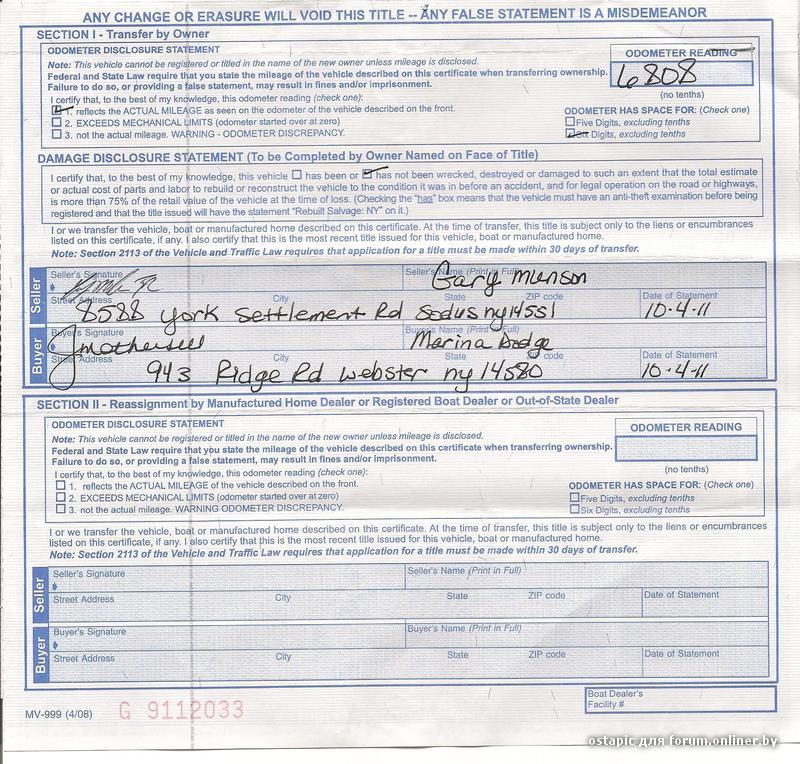 ANY CHANGE OR ERASURE WILL VOID THIS TITLE -- ANY FALSE STATEMENT IS A MISDEMEANOR
SECTION I - Transfer by Owner
ODOMETER DISCLOSURE STATEMENT
Note: This vehicle cannot be registered or titled in the name of the new owner unless mileage is disclosed.
Federal and State Law require that you state the mileage of the vehicle described on this certificate when transferring ownership.
Failure to do so, or providing a false statement, may result in fines and/or imprisonment.
ODOMETER READING
6808
(no tenths)
I certify that, to the best of my knowledge, this odometer reading (check one):
1. reflects the ACTUAL MILEAGE as seen on the odometer of the vehicle described on the front.
2. EXCEEDS MECHANICAL LIMITS (odometer started over at zero)
3. not the actual mileage. WARNING - ODOMETER DISCREPANCY.
ODOMETER HAS SPACE FOR: (Check one)
Five Digits, excluding tenths
Six Digits, excluding tenths
DAMAGE DISCLOSURE STATEMENT (To be Completed by Owner Named on Face of Title)
I certify that, to the best of my knowledge, this vehicle has been or has not been wrecked, destroyed or damaged to such an extent that the total estimate
or actual cost of parts and labor to rebuild or reconstruct the vehicle to the condition it was in before an accident, and for legal operation on the road or highways,
is more than 75% of the retail value of the vehicle at the time of loss. (Checking the "has" box means that the vehicle must have an anti-theft examination before being
registered and that the title issued will have the statement "Rebuilt Salvage: NY" on it.)
I or we transfer the vehicle, boat or manufactured home described on this certificate. At the time of transfer, this title is subject only to the liens or encumbrances
listed on this certificate, if any. I also certify that this is the most recent title issued for this vehicle, boat or manufactured home.
Note: Section 2113 of the Vehicle and Traffic Law requires that application for a title must be made within 30 days of transfer.
Seller
Seller's Signature
Seller's Name (Print in Full)
Gary Munson
Street Address City State ZIP code Date of Statement
8588 york settlement Rd Sodus ny 14551 10-4-11
Buyer
Buyer's Signature
Jmothersell
Buyer's Name (Print in Full)
Marina Dodge
Street Address City State Zip code Date of Statement
943 Ridge Rd webster ny 14580 10-4-11
SECTION II - Reassignment by Manufactured Home Dealer or Registered Boat Dealer or Out-of-State Dealer
ODOMETER DISCLOSURE STATEMENT
Note: This vehicle cannot be registered or titled in the name of the new owner unless mileage is disclosed.
Federal and State Law require that you state the mileage of the vehicle described on this certificate when transferring ownership.
Failure to do so, or providing a false statement, may result in fines and/or imprisonment.
ODOMETER READING
(no tenths)
I certify that, to the best of my knowledge, this odometer reading (check one):
1. reflects the ACTUAL MILEAGE of the vehicle described on the front.
2. EXCEEDS MECHANICAL LIMITS (odometer started over at zero)
3. not the actual mileage. WARNING ODOMETER DISCREPANCY.
ODOMETER HAS SPACE FOR: (Check one)
Five Digits, excluding tenths
Six Digits, excluding tenths
I or we transfer the vehicle, boat or manufactured home described on this certificate. At the time of transfer, this title is subject only to the liens or encumbrances
listed on this certificate, if any. I also certify that this is the most recent title issued for this vehicle, boat or manufactured home.
Note: Section 2113 of the Vehicle and Traffic Law requires that application for a title must be made within 30 days of transfer.
Seller
Seller's Signature
Seller's Name (Print in Full)
Street Address City State ZIP code Date of Statement
Buyer
Buyer's Signature
Buyer's Name (Print in Full)
Street Address City State ZIP code Date of Statement
Boat Dealer's
Facility #
MV-999 (4/08) G 9112033
ostapic для forum.onliner.by